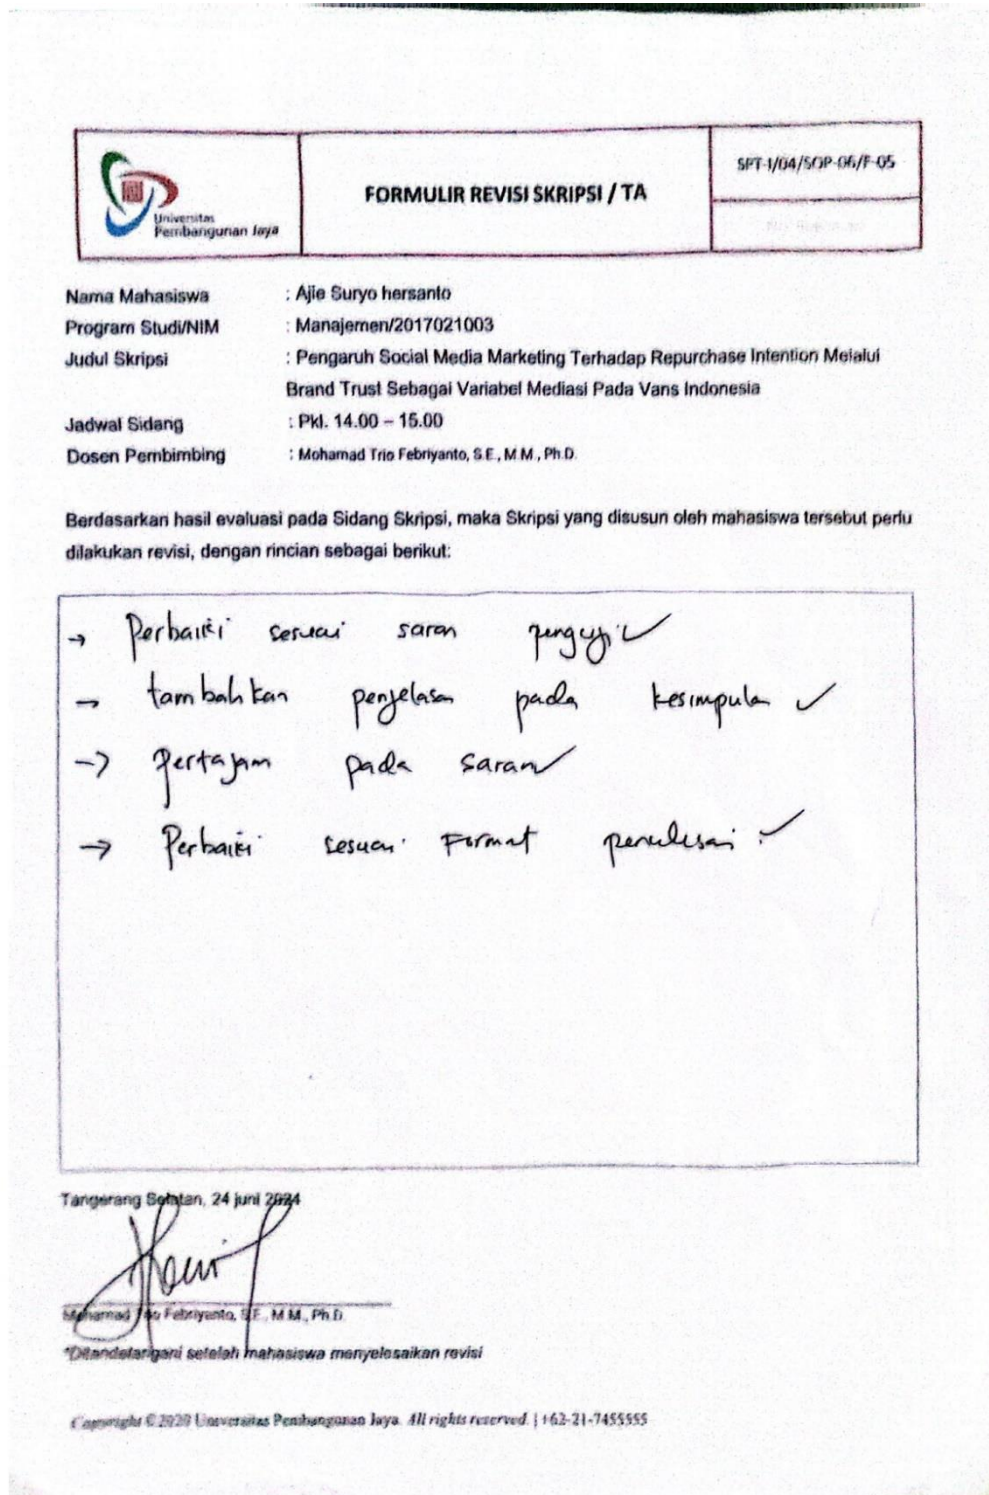 Universitas
Pembangunan Jaya
FORMULIR REVISI SKRIPSI / TA
SPT-I/04/SOP-06/F-05
Nama Mahasiswa : Ajie Suryo hersanto
Program Studi/NIM : Manajemen/2017021003
Judul Skripsi : Pengaruh Social Media Marketing Terhadap Repurchase Intention Melalui
Brand Trust Sebagai Variabel Mediasi Pada Vans Indonesia
Jadwal Sidang : Pkl. 14.00 – 15.00
Dosen Pembimbing : Mohamad Trio Febriyanto, S.E., M.M., Ph.D.
Berdasarkan hasil evaluasi pada Sidang Skripsi, maka Skripsi yang disusun oleh mahasiswa tersebut perlu
dilakukan revisi, dengan rincian sebagai berikut:
→ Perbaiki sesuai saran penguji ✓
→ tambahkan penjelasan pada kesimpulan ✓
→ Pertajam pada saran ✓
→ Perbaiki sesuai Format penulisan ✓
Tangerang Selatan, 24 juni 2024
Mohamad Trio Febriyanto, S.E., M.M., Ph.D.
*Ditandatangani setelah mahasiswa menyelesaikan revisi
Copyright ©2020 Universitas Pembangunan Jaya. All rights reserved. | +62-21-7455555